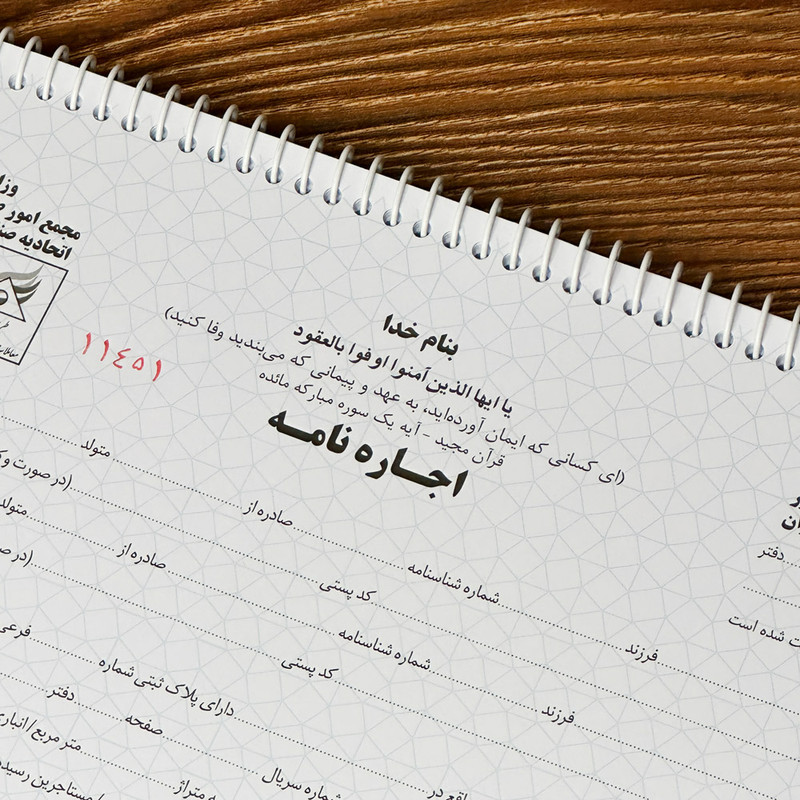 بنام خدا
یا ایها الذین آمنوا اوفوا بالعقود
(ای کسانی که ایمان آورده‌اید، به عهد و پیمانی که می‌بندید وفا کنید)
قرآن مجید - آیه یک سوره مبارکه مائده
اجاره نامه
مجمع امور
اتحادیه
۱۱٤٥۱
دفتر
فرزند شماره شناسنامه صادره از متولد
ت شده است کد پستی (در صورت و
فرزند شماره شناسنامه صادره از متولد
کد پستی (در ص
واقع در دارای پلاک ثبتی شماره فرعی
شماره سریال صفحه دفتر
به متراژ متر مربع / انباری
مستاجرین رسیده